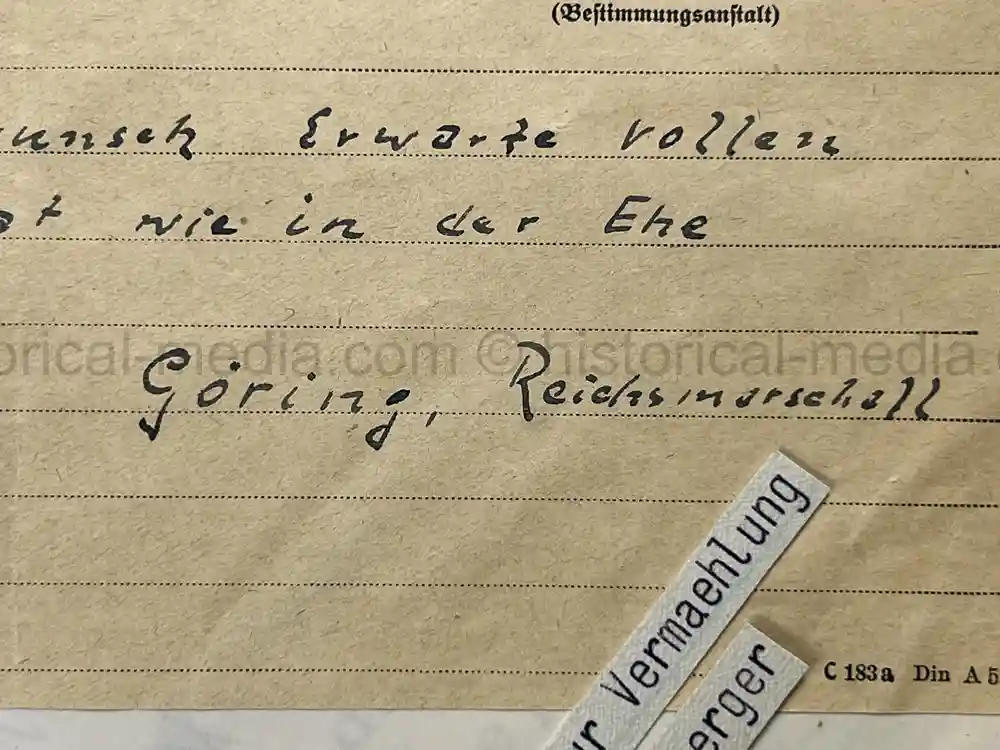 (Bestimmungsanstalt)
unsch Erwarte vollen
at wie in der Ehe
orical-media.com © historical-media.
Göring, Reichsmarschall
ur Vermaehlung
erger
C 183a Din A 5